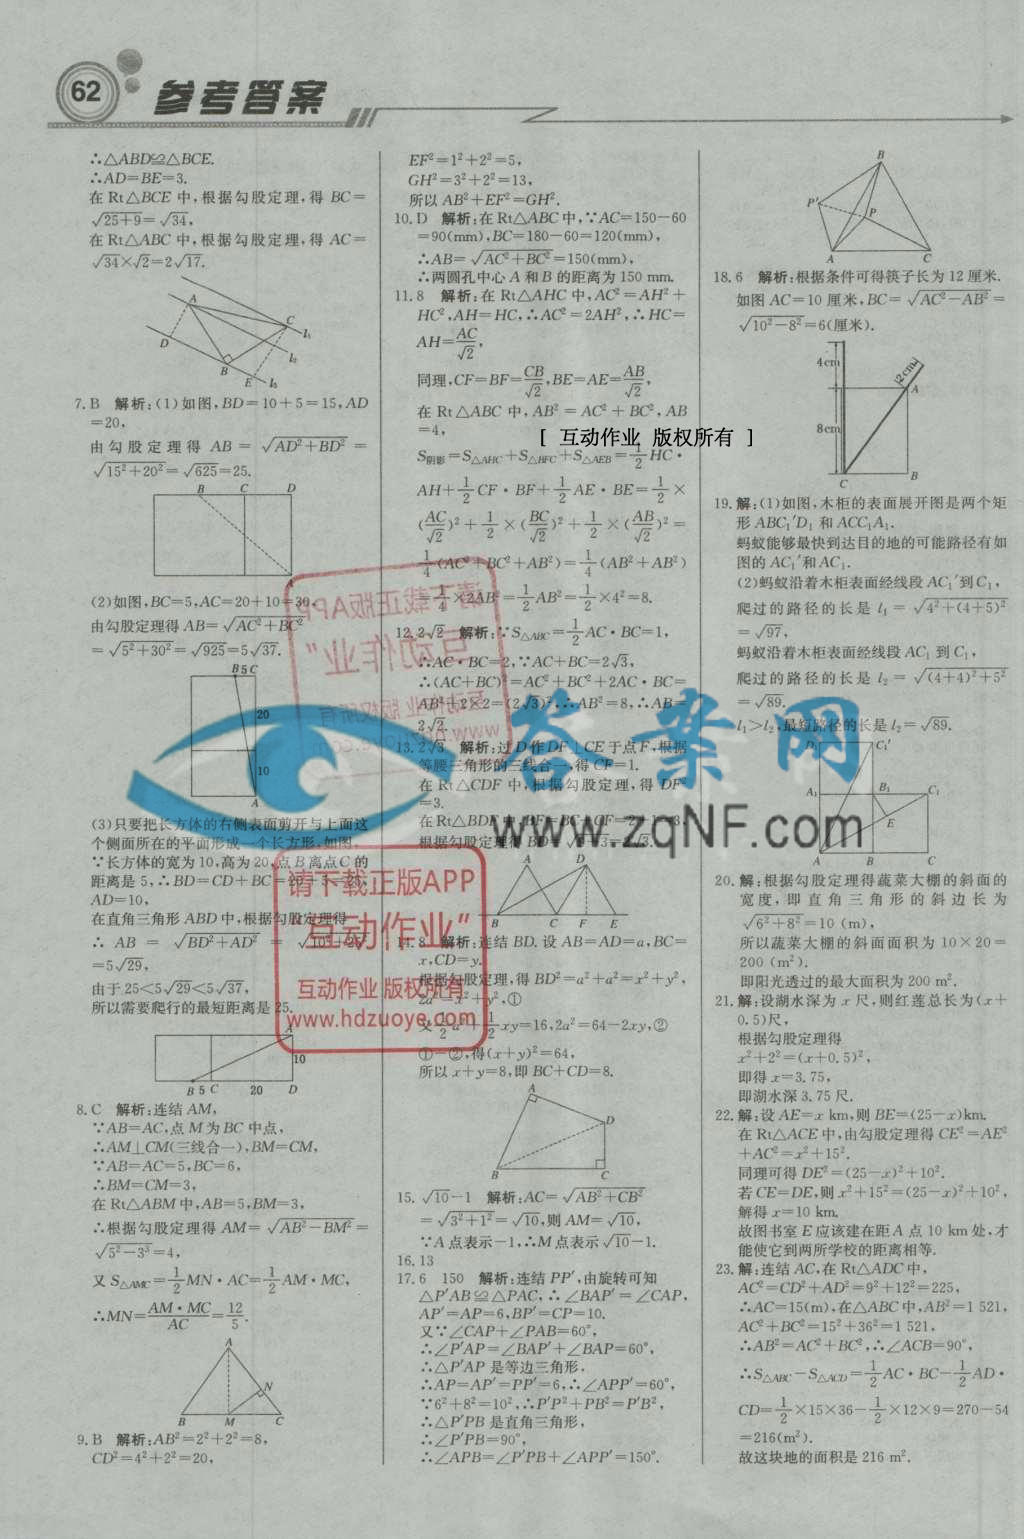 62 参考答案
∴△ABD≌△BCE.
∴AD=BE=3.
在 Rt△BCE 中,根据勾股定理,得 BC=
√25+9=√34,
在 Rt△ABC 中,根据勾股定理,得 AC=
√34×√2=2√17.
A
C
D
B
E
l₁
l₂
l₃
7. B 解析:(1)如图,BD=10+5=15,AD
=20,
由勾股定理得 AB=√AD²+BD²=
√15²+20²=√625=25.
B C D
A
(2)如图,BC=5,AC=20+10=30,
由勾股定理得 AB=√AC²+BC²
=√5²+30²=√925=5√37.
B 5 C
20
10
A
(3)只要把长方体的右侧表面剪开与上面这
个侧面所在的平面形成一个长方形,如图,
∵长方体的宽为10,高为20,点B离点C的
距离是5,∴BD=CD+BC=20+5=25,
AD=10,
在直角三角形 ABD 中,根据勾股定理得
∴ AB = √BD²+AD² = √10²+25²
=5√29,
由于25<5√29<5√37,
所以需要爬行的最短距离是25.
A
10
B 5 C 20 D
8. C 解析:连结 AM,
∵AB=AC,点 M 为 BC 中点,
∴AM⊥CM(三线合一),BM=CM,
∵AB=AC=5,BC=6,
∴BM=CM=3,
在 Rt△ABM 中,AB=5,BM=3,
∴根据勾股定理得 AM=√AB²−BM²=
√5²−3³=4,
又 S△AMC=1/2 MN·AC=1/2 AM·MC,
∴MN=AM·MC/AC=12/5.
A
N
B M C
9. B 解析:AB²=2²+2²=8,
CD²=4²+2²=20,
EF²=1²+2²=5,
GH²=3²+2²=13,
所以 AB²+EF²=GH².
10. D 解析:在 Rt△ABC 中,∵AC=150−60
=90(mm),BC=180−60=120(mm),
∴AB=√AC²+BC²=150(mm),
∴两圆孔中心 A 和 B 的距离为 150 mm.
11. 8 解析:在 Rt△AHC 中,AC²=AH²+
HC²,AH=HC,∴AC²=2AH²,∴HC=
AH=AC/√2,
同理,CF=BF=CB/√2,BE=AE=AB/√2,
在 Rt△ABC 中,AB²=AC²+BC²,AB
=4,
[ 互动作业 版权所有 ]
S阴影=S△AHC+S△BFC+S△AEB=1/2 HC·
AH+1/2 CF·BF+1/2 AE·BE=1/2×
(AC/√2)²+1/2×(BC/√2)²+1/2×(AB/√2)²=
1/4(AC²+BC²+AB²)=1/4(AB²+AB²)
=1/4×2AB²=1/2 AB²=1/2×4²=8.
12. 2√2 解析:∵S△ABC=1/2 AC·BC=1,
∴AC·BC=2,∵AC+BC=2√3,
∴(AC+BC)²=AC²+BC²+2AC·BC=
AB²+2×2=(2√3)²,∴AB²=8,∴AB=
2√2.
13. 2√3 解析:过 D 作 DF⊥CE 于点 F,根据
等腰三角形的三线合一,得 CF=1.
在 Rt△CDF 中,根据勾股定理,得 DF²
=3.
在 Rt△BDF 中,BF=BC+CF=2+1=3,
根据勾股定理得 BD=√9+3=2√3.
A D
B C F E
14. 8 解析:连结 BD. 设 AB=AD=a,BC=
x,CD=y.
根据勾股定理,得 BD²=a²+a²=x²+y²,
2a²=x²+y²,①
又 1/2 a²+1/2 xy=16,2a²=64−2xy,②
①−②,得(x+y)²=64,
所以 x+y=8,即 BC+CD=8.
A
D
B C
15. √10−1 解析:AC=√AB²+CB²
=√3²+1²=√10,则 AM=√10,
∵A 点表示−1,∴M 点表示√10−1.
16. 13
17. 6 150 解析:连结 PP′,由旋转可知
△P′AB≌△PAC,∴∠BAP′=∠CAP,
AP′=AP=6,BP′=CP=10.
又∵∠CAP+∠PAB=60°,
∴∠P′AP=∠BAP′+∠BAP=60°,
∴△P′AP 是等边三角形,
∴AP=AP′=PP′=6,∴∠APP′=60°,
∵6²+8²=10²,∴P′P²+PB²=P′B²,
∴△P′PB 是直角三角形,
∴∠P′PB=90°,
∴∠APB=∠P′PB+∠APP′=150°.
B
P′
P
A C
18. 6 解析:根据条件可得筷子长为 12 厘米.
如图 AC=10 厘米,BC=√AC²−AB²=
√10²−8²=6(厘米).
4cm
2cm
A
8cm
C
B
19. 解:(1)如图,木柜的表面展开图是两个矩
形 ABC₁′D₁ 和 ACC₁A₁.
蚂蚁能够最快到达目的地的可能路径有如
图的 AC₁′和 AC₁.
(2)蚂蚁沿着木柜表面经线段 AC₁′到 C₁,
爬过的路径的长是 l₁=√4²+(4+5)²
=√97,
蚂蚁沿着木柜表面经线段 AC₁ 到 C₁,
爬过的路径的长是 l₂=√(4+4)²+5²
=√89.
l₁>l₂,最短路径的长是 l₂=√89.
D₁ C₁′
A₁ B₁ C₁
E
A B C
20. 解:根据勾股定理得蔬菜大棚的斜面的
宽度,即直角三角形的斜边长为
√6²+8²=10(m),
所以蔬菜大棚的斜面面积为 10×20=
200(m²).
即阳光透过的最大面积为 200 m².
21. 解:设湖水深为 x 尺,则红莲总长为(x+
0.5)尺,
根据勾股定理得
x²+2²=(x+0.5)²,
即得 x=3.75,
即湖水深 3.75 尺.
22. 解:设 AE=x km,则 BE=(25−x)km.
在 Rt△ACE 中,由勾股定理得 CE²=AE²
+AC²=x²+15².
同理可得 DE²=(25−x)²+10².
若 CE=DE,则 x²+15²=(25−x)²+10²,
解得 x=10 km.
故图书室 E 应该建在距 A 点 10 km 处,才
能使它到两所学校的距离相等.
23. 解:连结 AC,在 Rt△ADC 中,
AC²=CD²+AD²=9²+12²=225,
∴AC=15(m),在△ABC 中,AB²=1 521,
AC²+BC²=15²+36²=1 521,
∴AB²=AC²+BC²,∴∠ACB=90°,
∴S△ABC−S△ACD=1/2 AC·BC−1/2 AD·
CD=1/2×15×36−1/2×12×9=270−54
=216(m²).
故这块地的面积是 216 m².
答案网
www.zqNF.com
请下载正版APP
互动作业"
互动作业 版权所有
www.hdzuoye.com
请下载正版APP
互动作业"
互动作业 版权所有